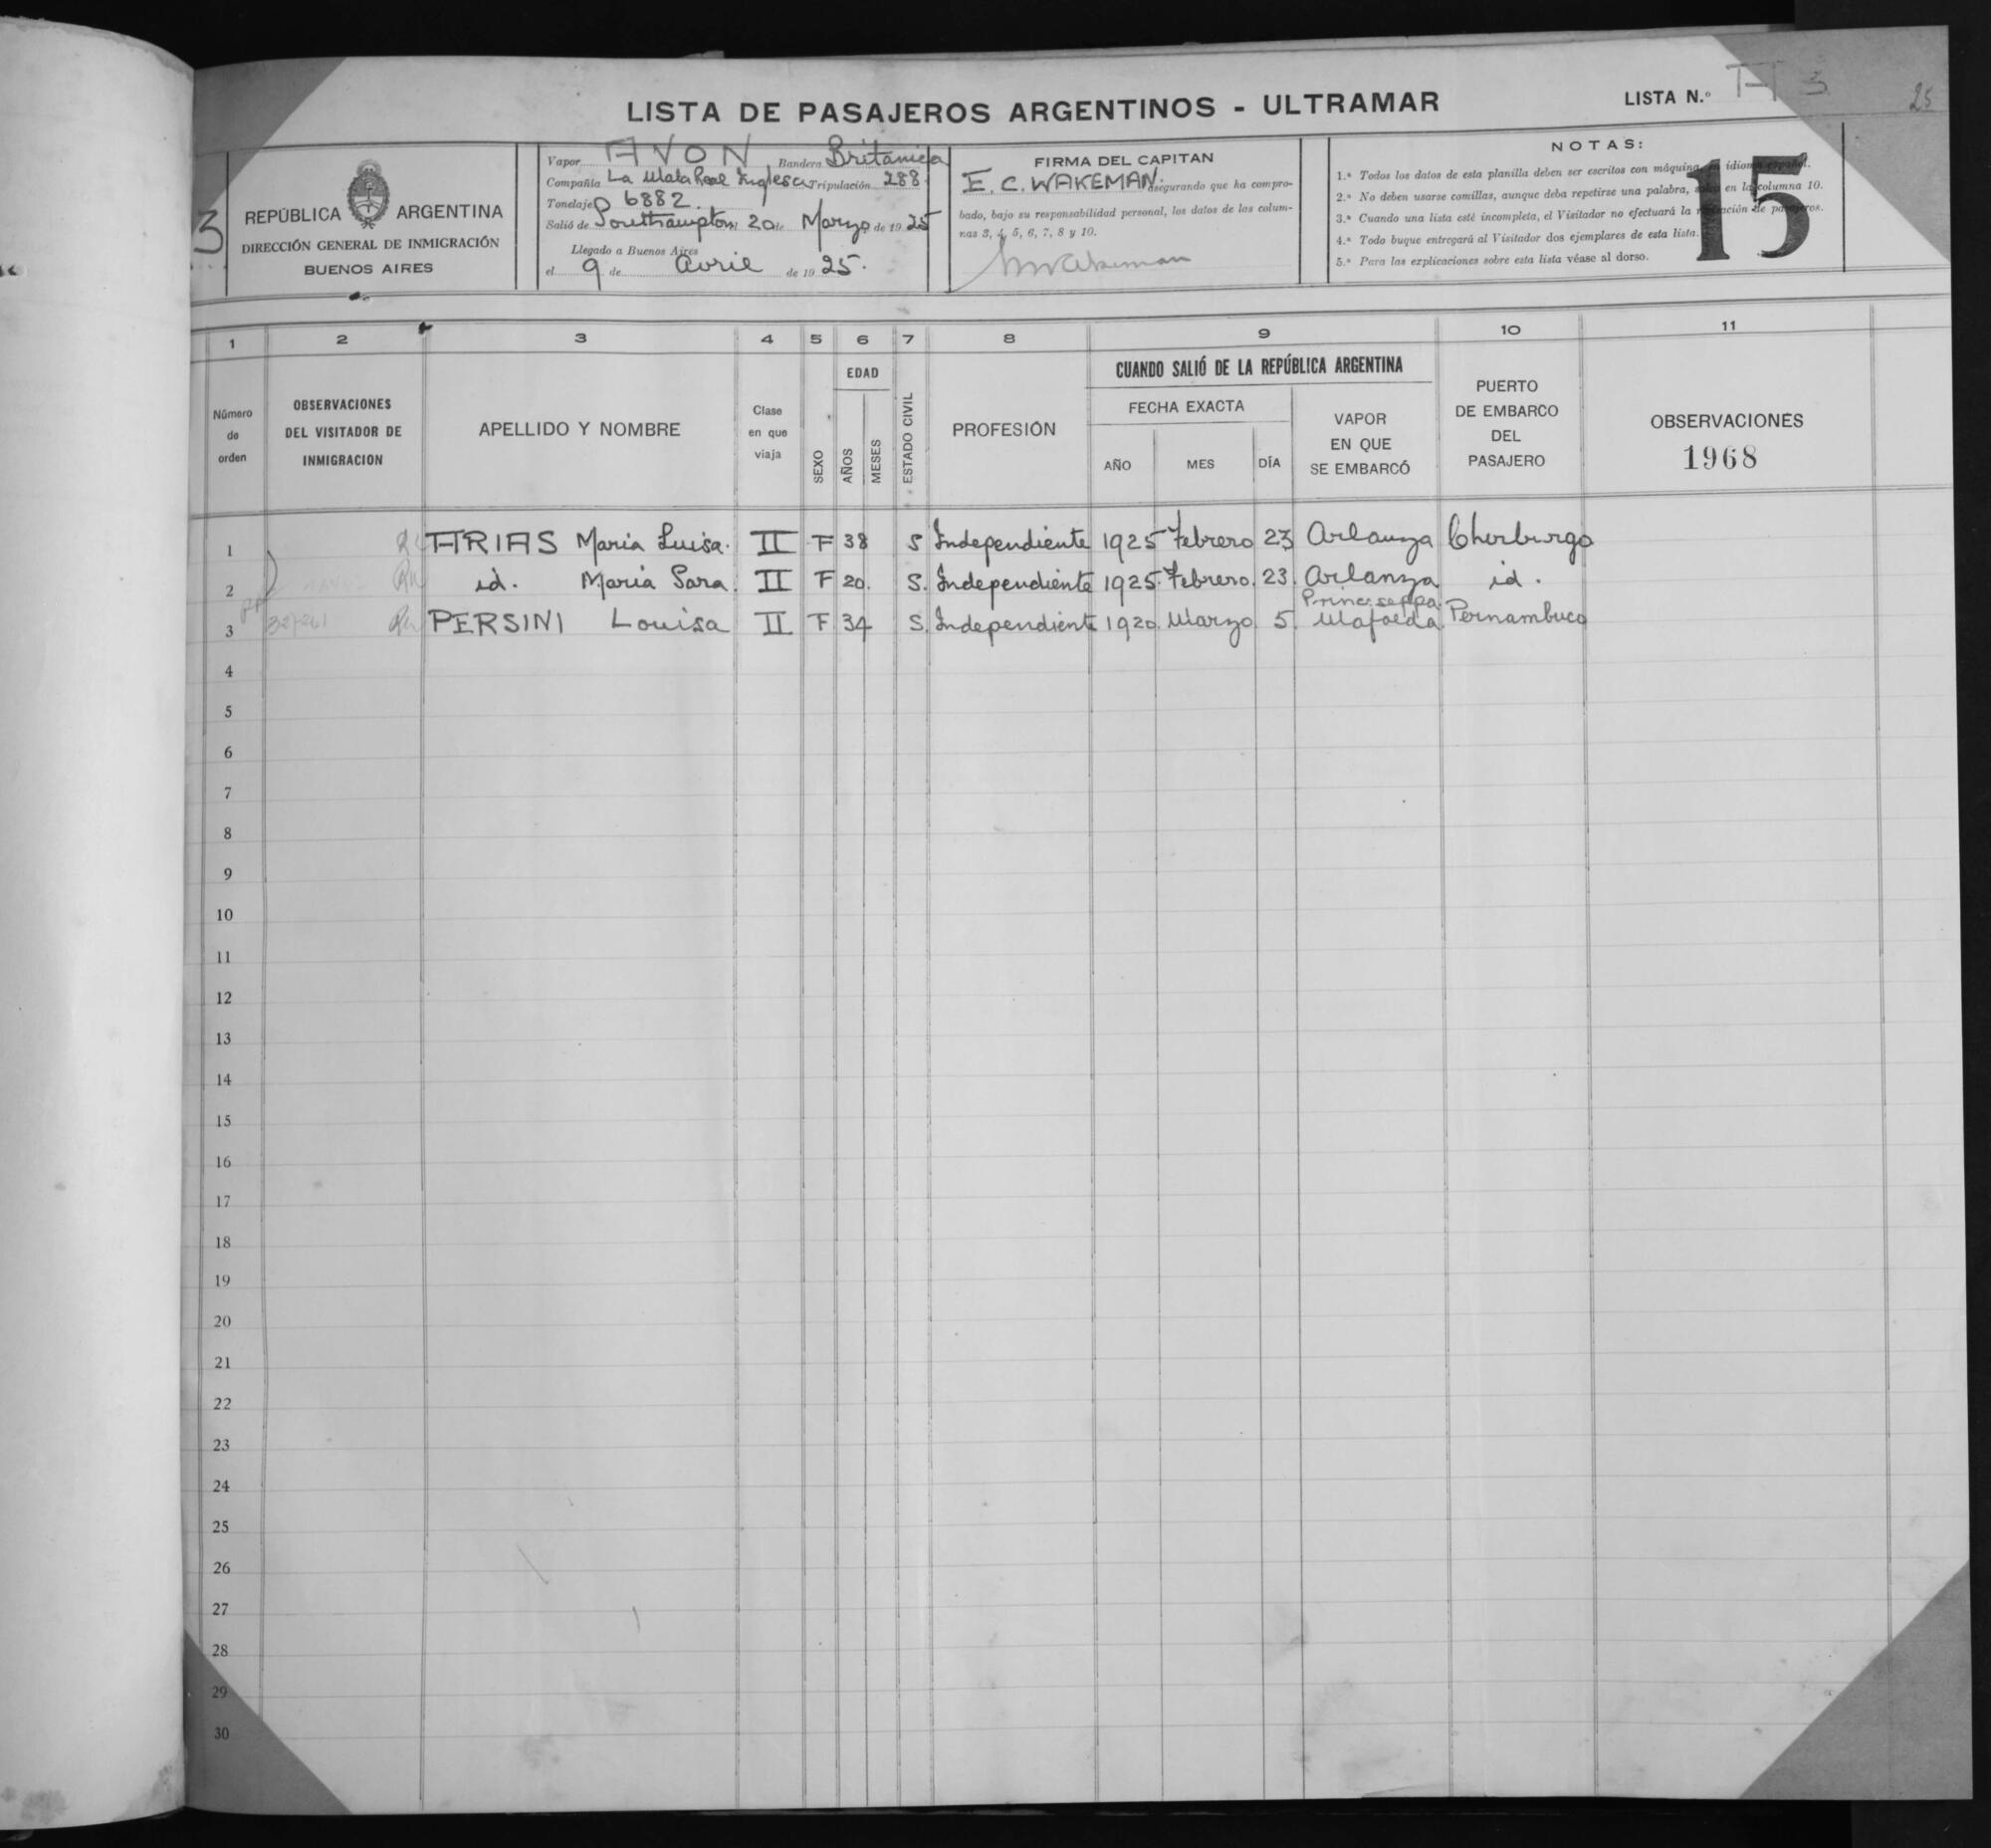 LISTA DE PASAJEROS ARGENTINOS - ULTRAMAR
LISTA N.º A 3
25
3
REPÚBLICA ARGENTINA
DIRECCIÓN GENERAL DE INMIGRACIÓN
BUENOS AIRES
Vapor AVON Bandera Britanica
Compañía La Mala Real Inglesa Tripulación 288
Tonelaje 6882.
Salió de Southampton 20 de Marzo de 1925
Llegado a Buenos Aires
el 9 de Avril de 1925.
FIRMA DEL CAPITAN
E. C. WAKEMAN asegurando que ha compro-
bado, bajo su responsabilidad personal, los datos de las colum-
nas 3, 4, 5, 6, 7, 8 y 10.
NOTAS:
1.ª Todos los datos de esta planilla deben ser escritos con máquina, en idioma español.
2.ª No deben usarse comillas, aunque deba repetirse una palabra, salvo en la columna 10.
3.ª Cuando una lista esté incompleta, el Visitador no efectuará la de pasajeros.
4.ª Todo buque entregará al Visitador dos ejemplares de esta lista.
5.ª Para las explicaciones sobre esta lista véase al dorso.
15
1 2 3 4 5 6 7 8 9 10 11
Número de orden
OBSERVACIONES DEL VISITADOR DE INMIGRACION
APELLIDO Y NOMBRE
Clase en que viaja
SEXO
EDAD
AÑOS
MESES
ESTADO CIVIL
PROFESIÓN
CUANDO SALIÓ DE LA REPÚBLICA ARGENTINA
FECHA EXACTA
AÑO MES DÍA
VAPOR EN QUE SE EMBARCÓ
PUERTO DE EMBARCO DEL PASAJERO
OBSERVACIONES
1968
1 ARIAS Maria Luisa. II F 38 S Independiente 1925 Febrero 23 Arlanza Cherburgo
2 id. Maria Sara. II F 20. S. Independiente 1925. Febrero. 23. Arlanza id.
3 PERSINI Louisa II F 34 S. Independiente 1920. Marzo 5 Princeseppa Mafalda. Pernambuco
4
5
6
7
8
9
10
11
12
13
14
15
16
17
18
19
20
21
22
23
24
25
26
27
28
29
30